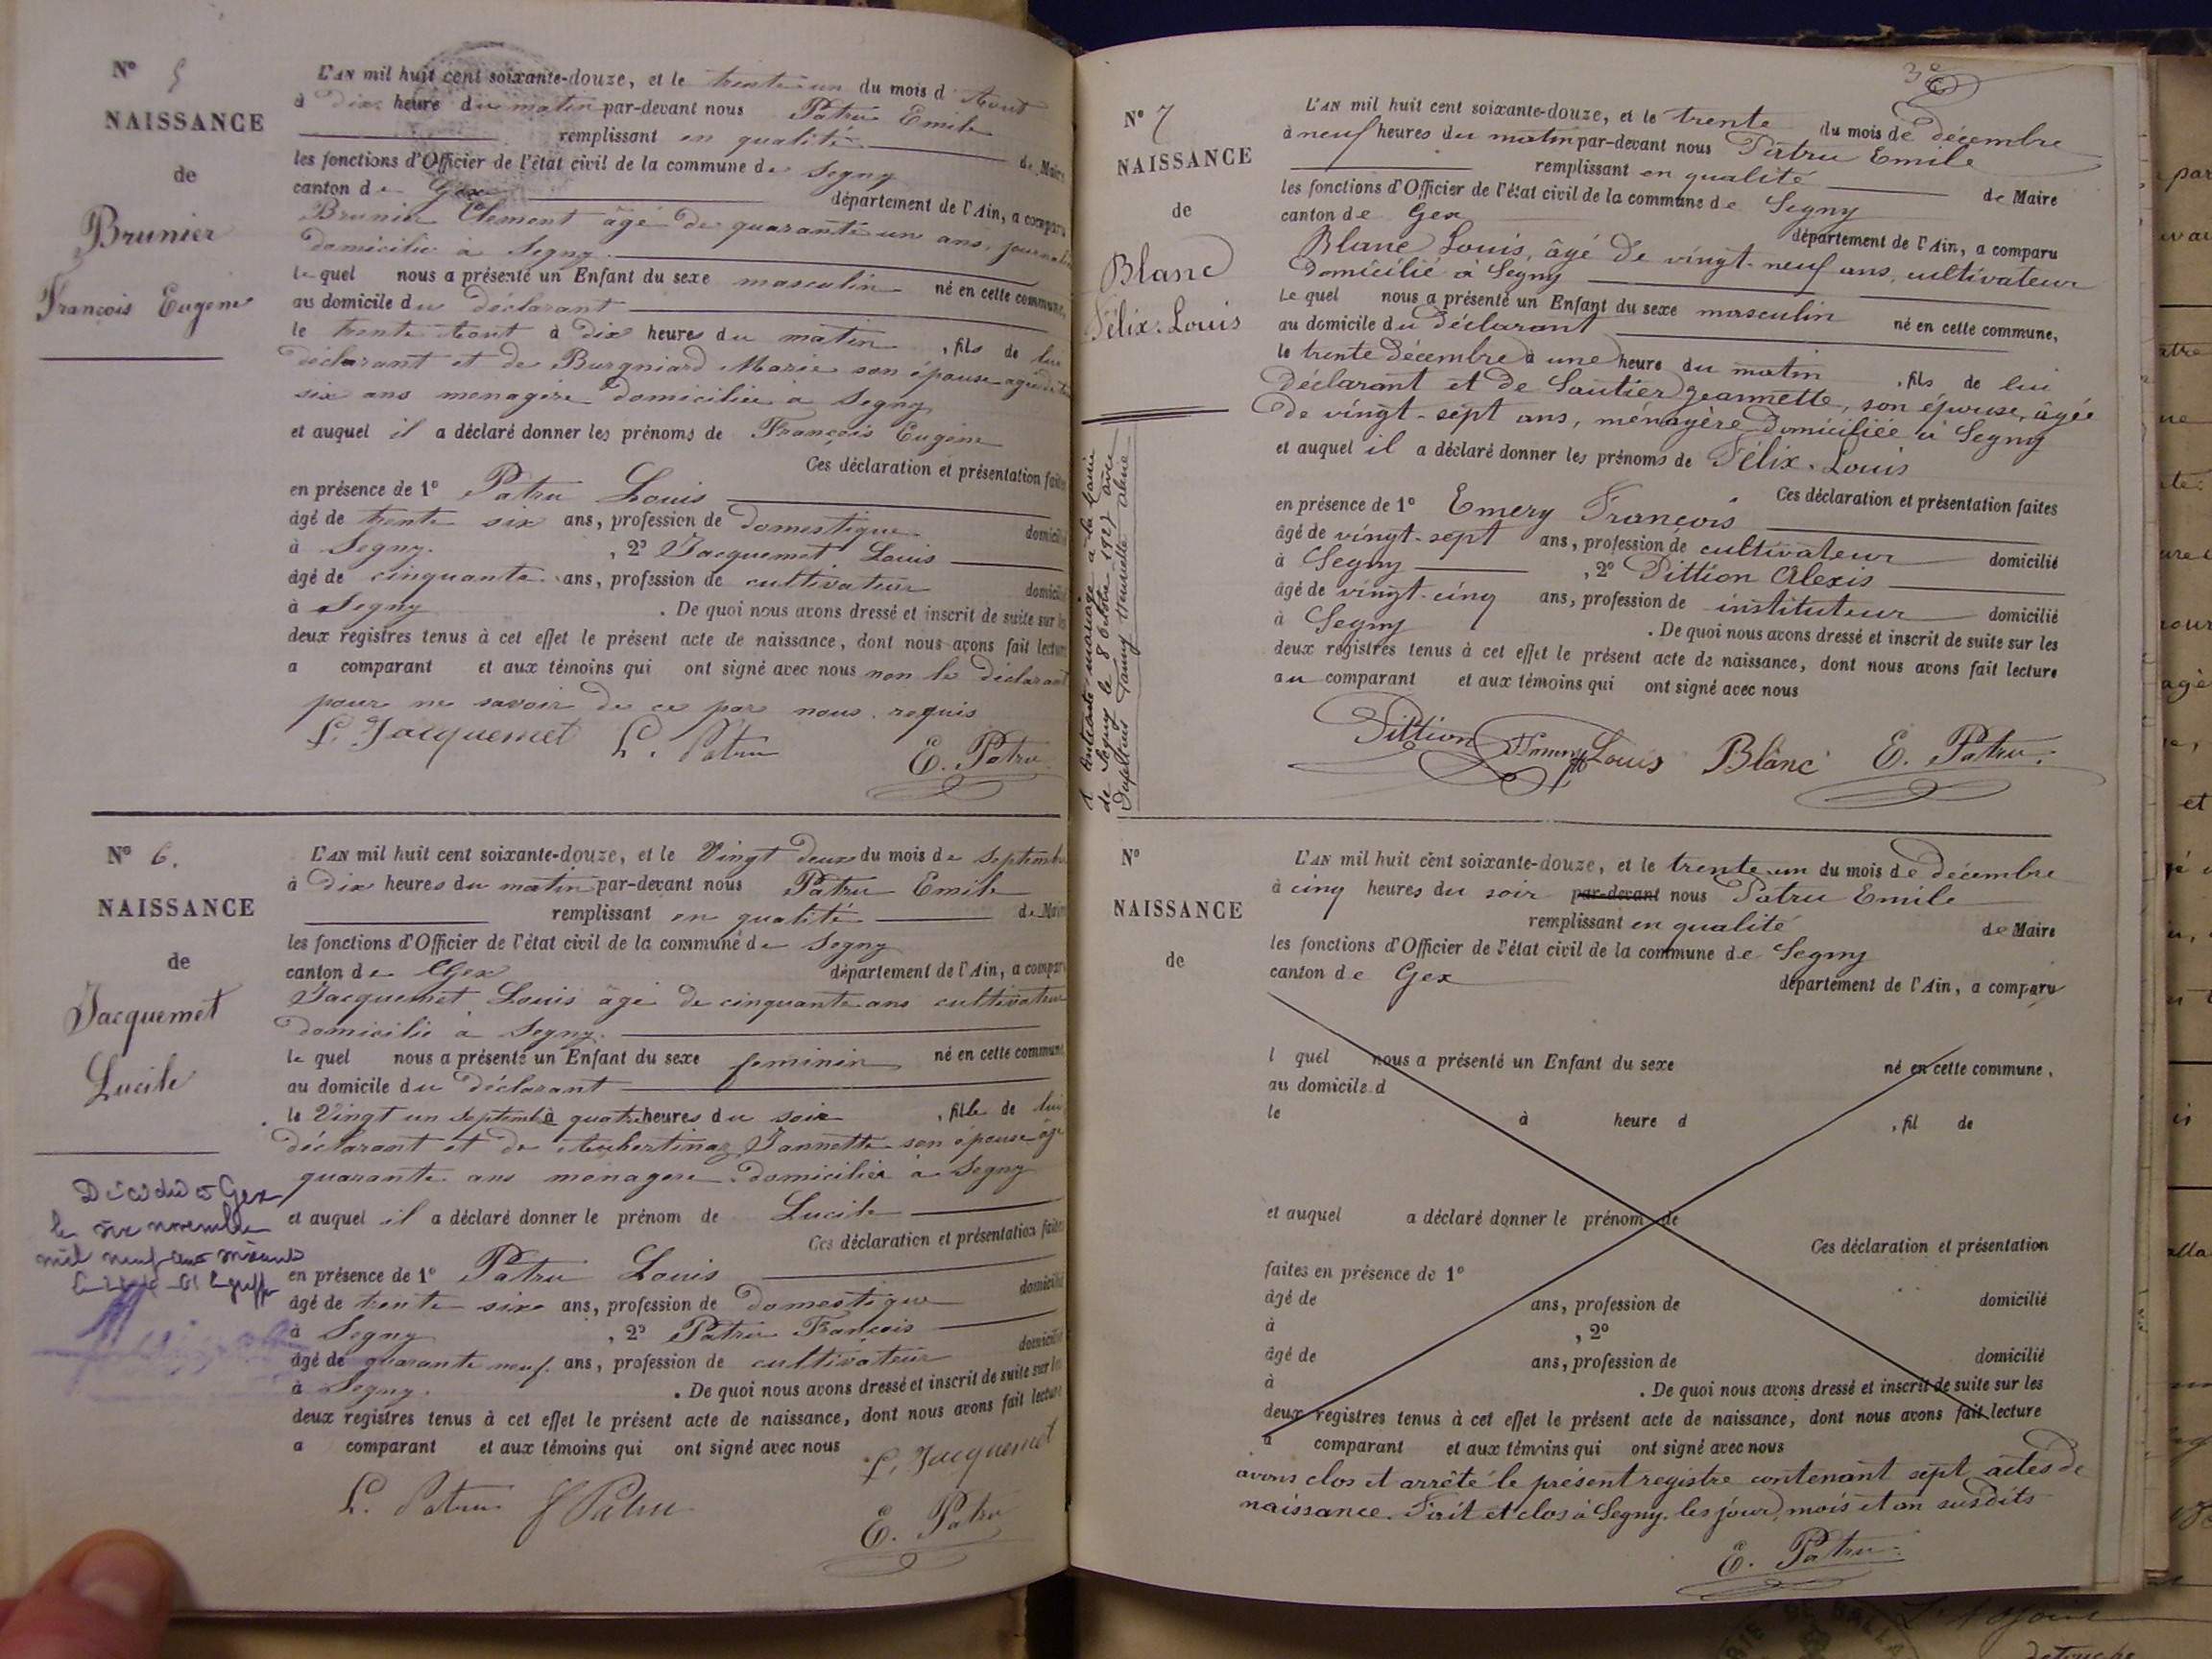 N° 5
NAISSANCE
de
Brunier
François Eugène
L'AN mil huit cent soixante-douze, et le trente un du mois d'Aout
à Dix heure du matin par-devant nous Patru Emile
remplissant en qualité de Maire
les fonctions d'Officier de l'état civil de la commune de Segny
canton de Gex département de l'Ain, a comparu
Brunier Clement âgé de quarante un ans, journalier
domicilié à Segny.
le quel nous a présenté un Enfant du sexe masculin né en cette commune
au domicile du déclarant
le trente Aout à dix heures du matin, fils de lui
déclarant et de Burgniard Marie son épouse agée de
six ans menagère domiciliée à Segny
et auquel il a déclaré donner les prénoms de François Eugène
Ces déclaration et présentation faites
en présence de 1° Patru Louis
âgé de trente six ans, profession de domestique domicilié
à Segny. , 2° Jacquemet Louis
âgé de cinquante ans, profession de cultivateur domicilié
à Segny . De quoi nous avons dressé et inscrit de suite sur les
deux registres tenus à cet effet le présent acte de naissance, dont nous avons fait lecture
a comparant et aux témoins qui ont signé avec nous non le déclarant
pour ne savoir de ce par nous requis
L. Jacquemet L. Patru E. Patru
N° 6.
NAISSANCE
de
Jacquemet
Lucile
Décédée à Gex
le six novembre
mil neuf cent soixante
L'AN mil huit cent soixante-douze, et le Vingt deux du mois de Septembre
à dix heures du matin par-devant nous Patru Emile
remplissant en qualité de Maire
les fonctions d'Officier de l'état civil de la commune de Segny
canton de Gex département de l'Ain, a comparu
Jacquemet Louis âgé de cinquante ans cultivateur
domicilié à Segny.
le quel nous a présenté un Enfant du sexe feminin né en cette commune
au domicile du déclarant
le Vingt un Septemb à quatre heures du soir, fille de lui
déclarant et de Jannette son épouse âgé
quarante ans menagere domiciliée à Segny
et auquel il a déclaré donner le prénom de Lucile
Ces déclaration et présentation faites
en présence de 1° Patru Louis
âgé de trente six ans, profession de domestique domicilié
à Segny , 2° Patru François
âgé de quarante neuf ans, profession de cultivateur domicilié
à Segny. . De quoi nous avons dressé et inscrit de suite sur les
deux registres tenus à cet effet le présent acte de naissance, dont nous avons fait lecture
a comparant et aux témoins qui ont signé avec nous L. Jacquemet
L. Patru F Patru E. Patru
3e
N° 7
NAISSANCE
de
Blanc
Félix-Louis
A contracté mariage à la Mairie
de Segny le 8 Octobre 1927 avec
Fanny Henriette
L'AN mil huit cent soixante-douze, et le trente du mois de décembre
à neuf heures du matin par-devant nous Patru Emile
remplissant en qualité de Maire
les fonctions d'Officier de l'état civil de la commune de Segny
canton de Gex département de l'Ain, a comparu
Blanc Louis, âgé de vingt-neuf ans, cultivateur
domicilié à Segny
le quel nous a présenté un Enfant du sexe masculin né en cette commune,
au domicile du déclarant
le trente décembre à une heure du matin, fils de lui
déclarant et de Sautier Jeannette, son épouse, âgée
de vingt-sept ans, ménagère domiciliée à Segny
et auquel il a déclaré donner les prénoms de Félix-Louis
Ces déclaration et présentation faites
en présence de 1° Emery François
âgé de vingt-sept ans, profession de cultivateur domicilié
à Segny , 2° Pittion Alexis
âgé de vingt-cinq ans, profession de instituteur domicilié
à Segny . De quoi nous avons dressé et inscrit de suite sur les
deux registres tenus à cet effet le présent acte de naissance, dont nous avons fait lecture
au comparant et aux témoins qui ont signé avec nous
Pittion Emery Louis Blanc E. Patru
N°
NAISSANCE
de
L'AN mil huit cent soixante-douze, et le trente-un du mois de décembre
à cinq heures du soir par-devant nous Patru Emile
remplissant en qualité de Maire
les fonctions d'Officier de l'état civil de la commune de Segny
canton de Gex département de l'Ain, a comparu
l quel nous a présenté un Enfant du sexe né en cette commune,
au domicile d
le à heure d , fil de
et auquel a déclaré donner le prénom de
Ces déclaration et présentation
faites en présence de 1°
âgé de ans, profession de domicilié
à , 2°
âgé de ans, profession de domicilié
à . De quoi nous avons dressé et inscrit de suite sur les
deux registres tenus à cet effet le présent acte de naissance, dont nous avons fait lecture
a comparant et aux témoins qui ont signé avec nous
avons clos et arrêté le présent registre contenant sept actes de
naissance. Fait et clos à Segny, les jour, mois et an susdits
E. Patru